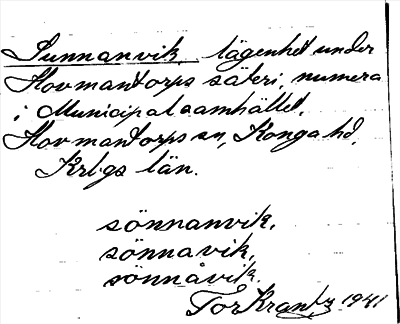 Sunnanvik, lägenhet under
Hovmantorps säteri, numera
i Municipalsamhället,
Hovmantorps sn, Konga hd,
Krbgs län.
sönnanvik,
sönnavik,
sönnåvik.
Tor Krantz 1941